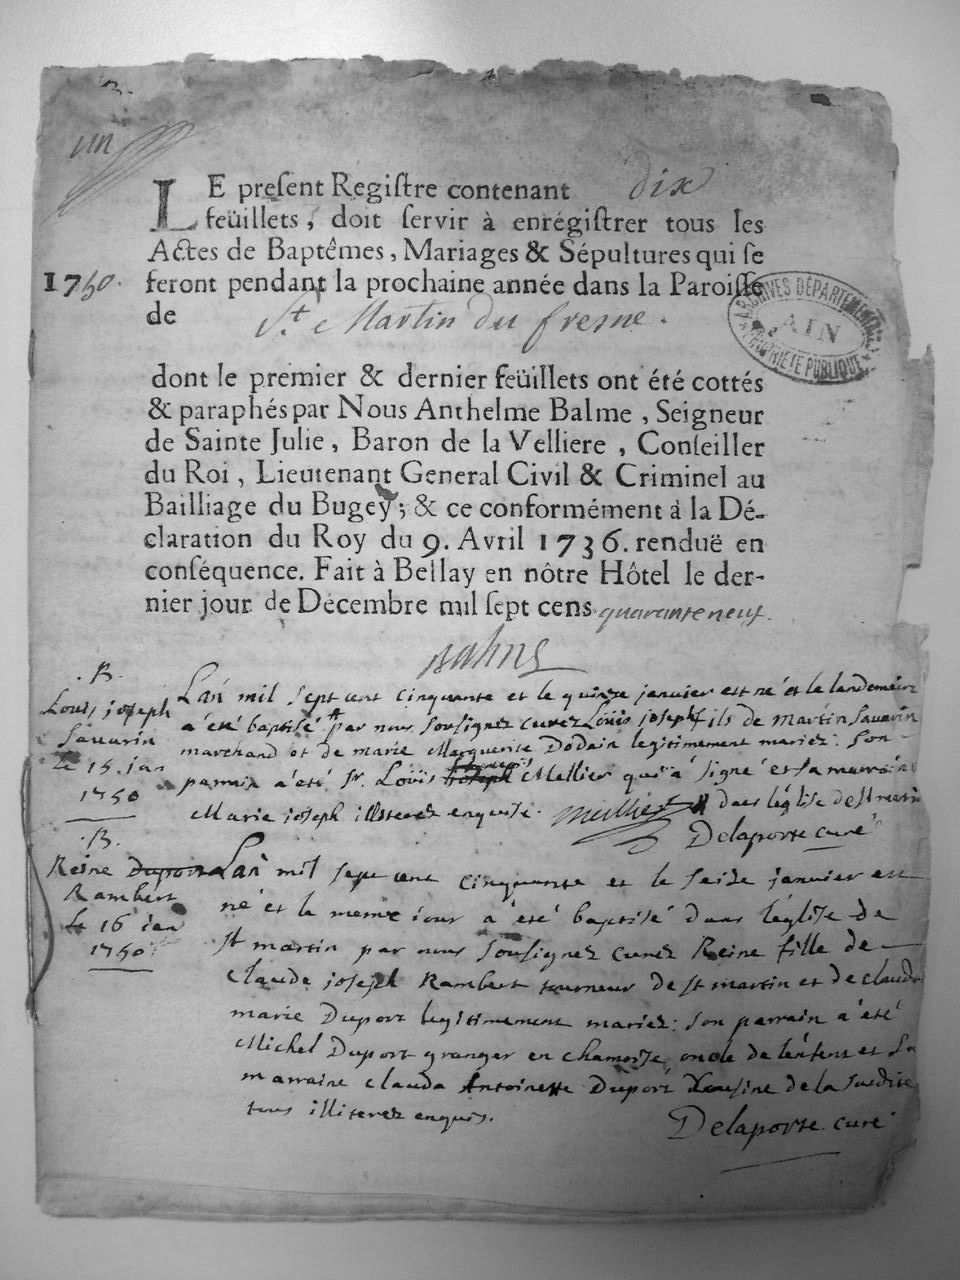 B.
un
LE present Registre contenant dix
feüillets, doit servir à enrégistrer tous les
Actes de Baptêmes, Mariages & Sépultures qui se
1750. feront pendant la prochaine année dans la Paroisse
de St Martin du fresne.
ARCHIVES DÉPARTEMENTALES
AIN
PROPRIÉTÉ PUBLIQUE
dont le premier & dernier feüillets ont été cottés
& paraphés par Nous Anthelme Balme, Seigneur
de Sainte Julie, Baron de la Velliere, Conseiller
du Roi, Lieutenant General Civil & Criminel au
Bailliage du Bugey; & ce conformément à la Dé-
claration du Roy du 9. Avril 1736. renduë en
conséquence. Fait à Bellay en nôtre Hôtel le der-
nier jour de Decembre mil sept cens quarante neuf.
B.
Louis joseph
Savarin
le 15. jan
1750
Lan mil sept cent cinquante et le quinze janvier est né et le landemain
a été baptisé par nous soussignez curez Loüis joseph fils de martin Savarin
marchand et de marie Marguerite Dodain legitimement mariez: son
parrain a été Sr. Loüis Mellier qui a signé et sa marraine
Marie joseph illiterez enquise. Mellier dans léglise de St martin
Delaporte curé
B.
Reine Duport
Rambert
le 16 jan
1750
Lan mil sept cent cinquante et le saize janvier est
né et le meme jour a été baptisé dans léglise de
St martin par nous soussignez curez Reine fille de
Claude joseph Rambert tourneur de st martin et de claude
marie Duport legitimement mariez: son parrain a été
Michel Duport granger en chamoise, oncle de lenfent et sa
marraine claude Antoinette Duport Cousine de la susdite
tous illiterez enquis.
Delaporte curé